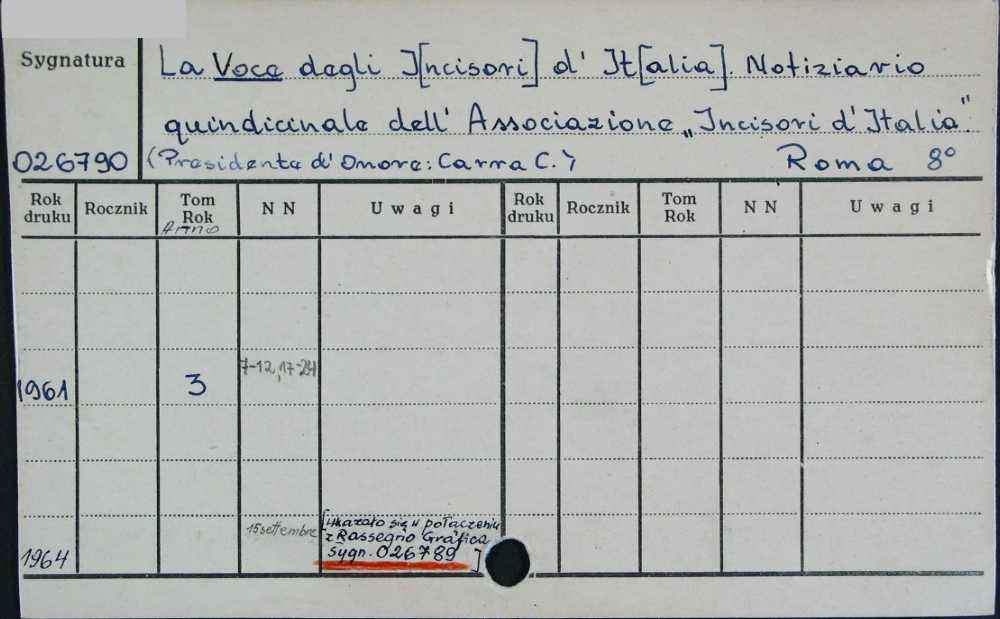 Sygnatura
La Voce degli I[ncisori] d' It[alia]. Notiziario
quindicinale dell' Associazione „Incisori d'Italia".
026790 (Presidente d'Onore: Carra C.) Roma 8°
Rok druku Rocznik Tom Rok NN Uwagi Rok druku Rocznik Tom Rok NN Uwagi
Anno
1961 3 7-12, 17-24
1964 15 settembre [Ukazało się w połączeniu
z Rassegno Grafica
sygn. 026789]